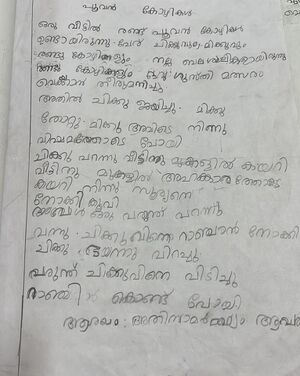 പൂവൻ കോഴികൾ
ഒരു വീട്ടിൽ രണ്ട് പൂവൻ കോഴികൾ
ഉണ്ടായിരുന്നു. പേര് ചിക്കുവും മിക്കുവും
രണ്ടു കോഴികളും നല്ല ബലശാലികളായിരുന്നു
രണ്ടു കോഴികളും ഒരു ഗുസ്തി മത്സരം
വെക്കാൻ തീരുമാനിച്ചു.
അതിൽ ചിക്കു ജയിച്ചു. മിക്കു
തോറ്റു. മിക്കു അവിടെ നിന്നു
വിഷമത്തോടെ പോയി
ചിക്കു പറന്നു വീട്ടിനു മുകളിൽ കയറി
വീട്ടിനു മുകളിൽ അഹങ്കാരത്തോടെ
കയറി നിന്നു സൂര്യനെ
നോക്കി കൂവി
അപ്പോൾ ഒരു പരുന്ത് പറന്നു
വന്നു. ചിക്കുവിനെ റാഞ്ചാൻ നോക്കി
ചിക്കു ഭയന്നു വിറച്ചു
പരുന്ത് ചിക്കുവിനെ പിടിച്ചു
കൊണ്ട് പോയി
ആശയം: അതിസാമർത്ഥ്യം